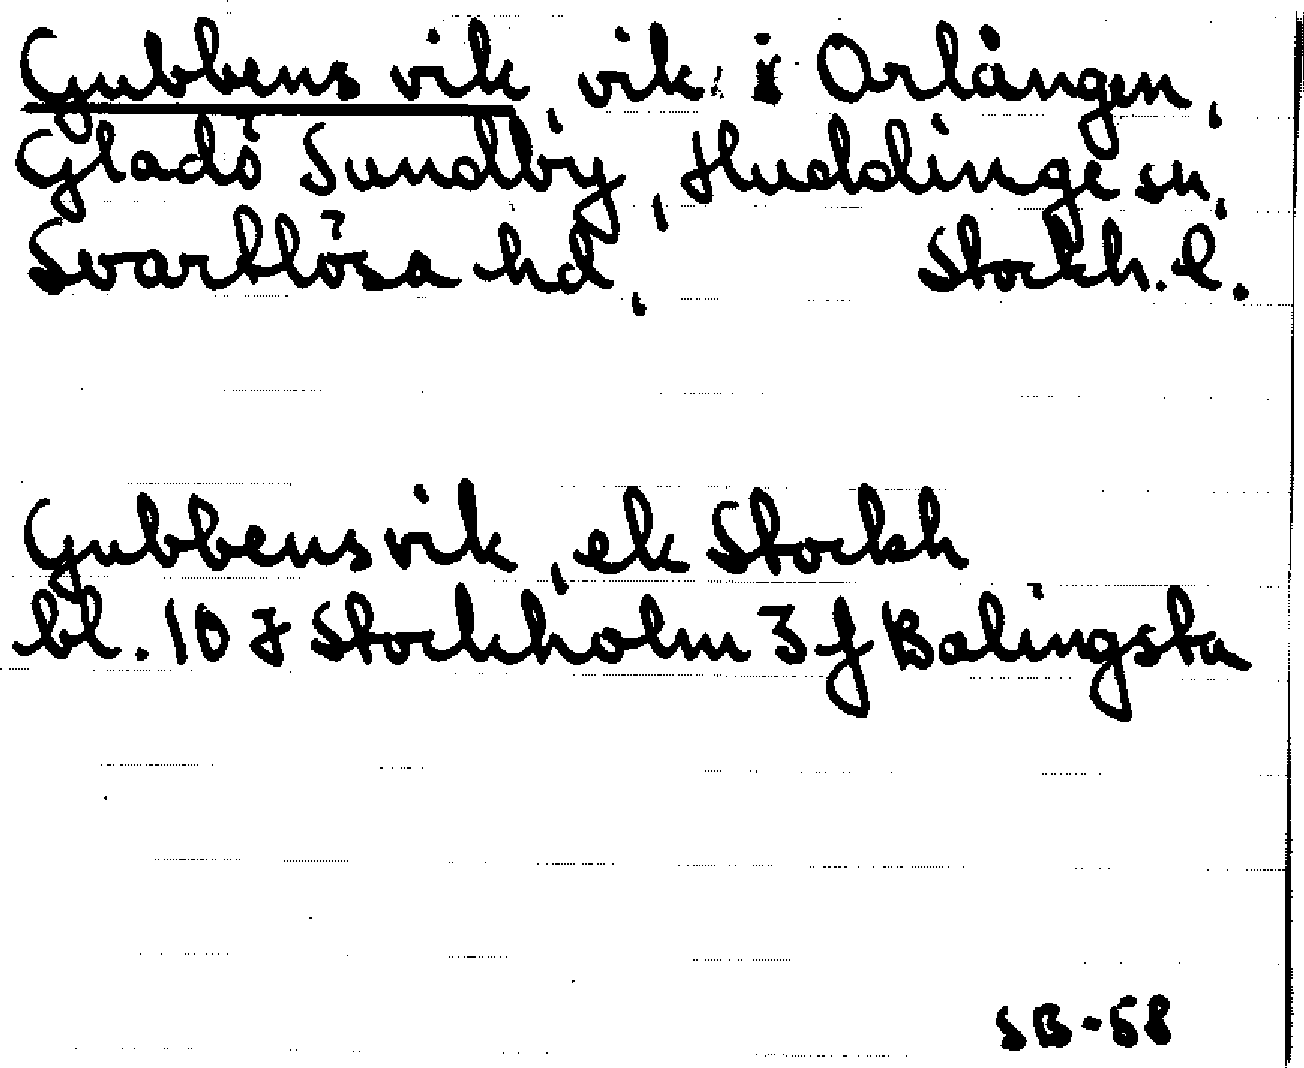 Gubbens vik, vik i Orlången,
Gladö Sundby, Huddinge sn,
Svartlösa hd, Stockh. l.
Gubbensvik, ek Stockh
bl. 10 J Stockholm 3 f Balingsta
SB-58